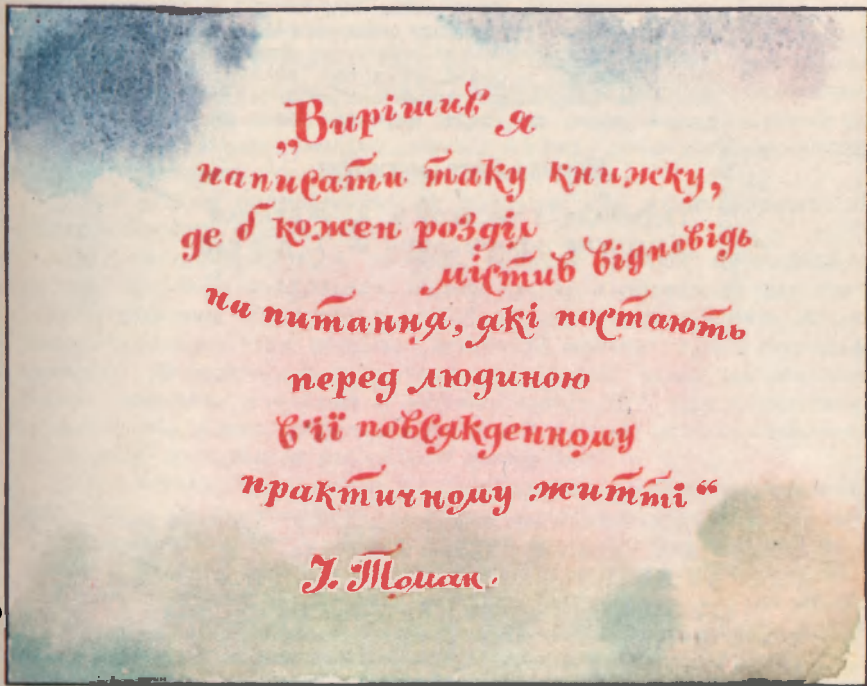 „Вирішив я
написати таку книжку,
де б кожен розділ
містив відповідь
на питання, які постають
перед людиною
в її повсякденному
практичному житті“
І. Томан.